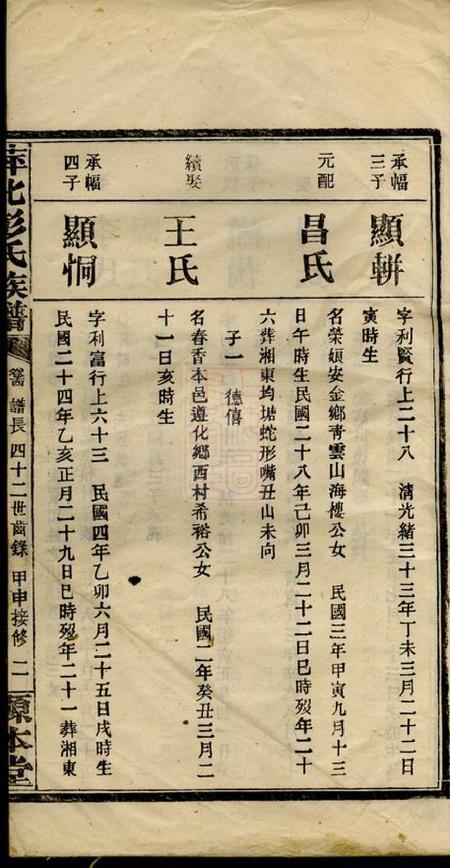 承幅三子
顯輧
字利賢行上二十八 清光緒三十三年丁未三月二十二日
寅時生
元配
昌氏
名榮頻安金鄉青雲山海樓公女 民國三年甲寅九月十三
日午時生民國二十八年己卯三月二十二日巳時歿年二十
六葬湘東均塘蛇形嘴丑山未向
子一 德僖
續娶
王氏
名春香本邑遵化鄉西村希裕公女 民國二年癸丑三月二
十一日亥時生
承幅四子
顯恫
字利富行上六十三 民國四年乙卯六月二十五日戌時生
民國二十四年乙亥正月二十九日巳時歿年二十一葬湘東
萍北彭氏族譜 譜長 四十二世齒錄 甲申接修 二 源本堂